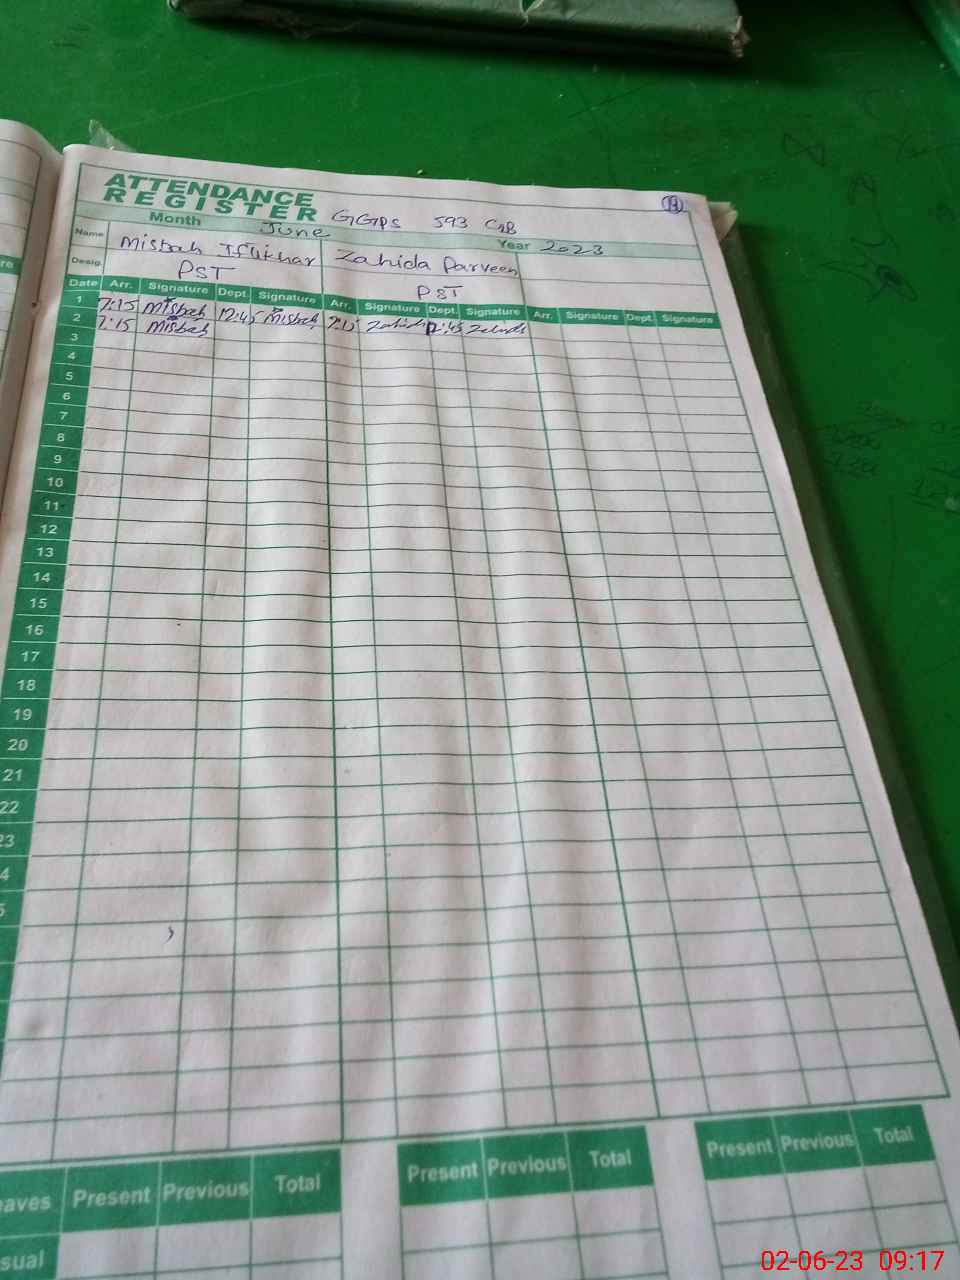 ATTENDANCE
REGISTER GGPS 593 GB 19
Month June Year 2023
Name Misbah Iftikhar Zahida Parveen
Desig. PST PST
Date Arr. Signature Dept. Signature Arr. Signature Dept. Signature Arr. Signature Dept. Signature
1 7:15 Misbah 12:45 Misbah 7:15 Zahida 12:45 Zahida
2 7:15 Misbah
3
4
5
6
7
8
9
10
11
12
13
14
15
16
17
18
19
20
21
22
23
4
5
eaves Present Previous Total Present Previous Total Present Previous Total
sual
02-06-23 09:17